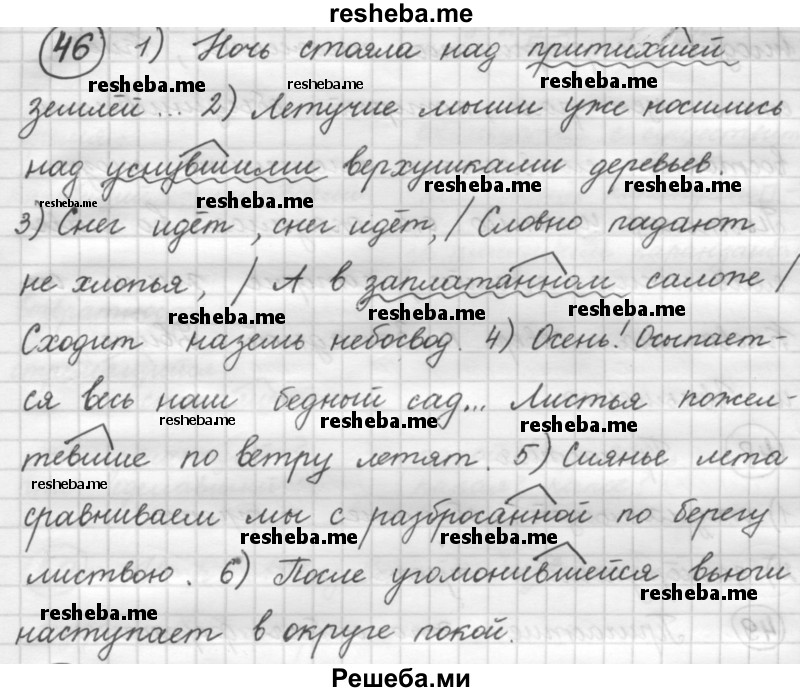 resheba.me
46 1) Ночь стояла над притихшей
resheba.me resheba.me resheba.me
землёй... 2) Летучие мыши уже носились
над уснувшими верхушками деревьев.
resheba.me resheba.me resheba.me
3) Снег идёт, снег идёт, / Словно падают
не хлопья, / А в заплатанном салопе /
resheba.me resheba.me resheba.me
Сходит наземь небосвод. 4) Осень! Осыпает-
ся весь наш бедный сад... Листья пожел-
resheba.me resheba.me
тевшие по ветру летят. 5) Сиянье лета
resheba.me
сравниваем мы с разбросанной по берегу
resheba.me resheba.me
листвою. 6) После угомонившейся вьюги
resheba.me resheba.me
наступает в округе покой.
Решеба.ми